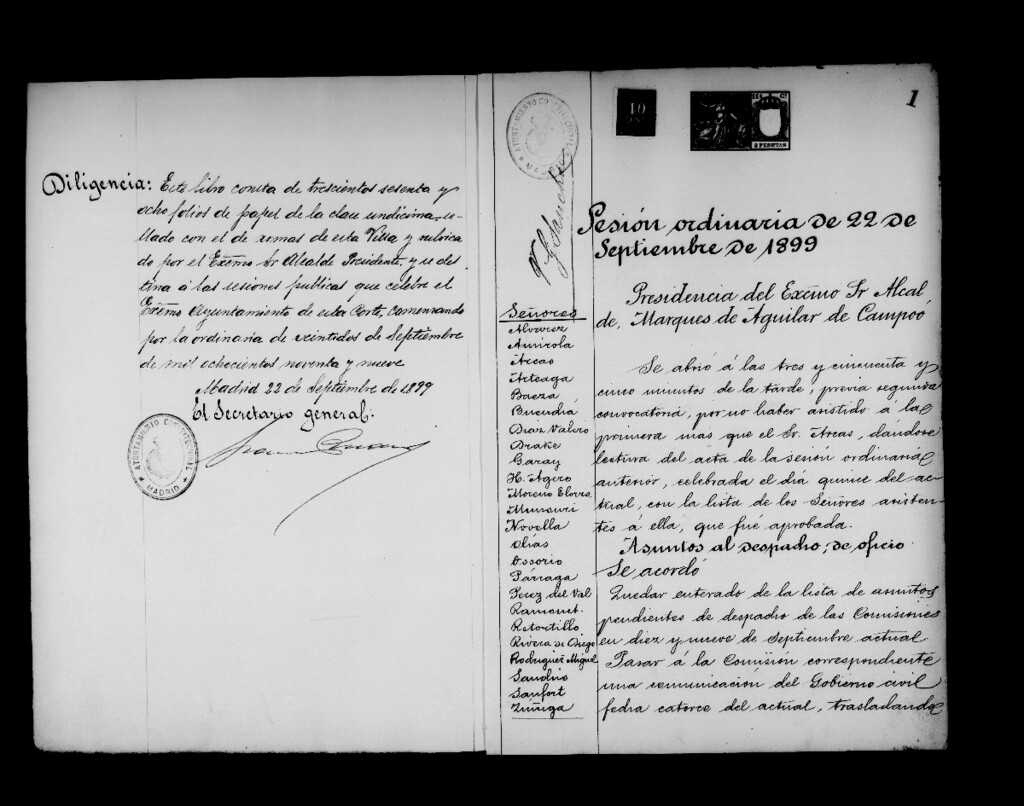 Diligencia: Este libro consta de trescientos sesenta y
ocho folios de papel de la clase undécima, se-
llado con el de armas de esta Villa y rubrica
do por el Excmo Sr Alcalde Presidente, y se des
tina á las sesiones publicas que celebre el
Excmo Ayuntamiento de esta Corte, comenzando
por la ordinaria de veintidos de Septiembre
de mil ochocientos noventa y nueve
Madrid 22 de Septiembre de 1899
El Secretario general:
AYUNTAMIENTO CONSTITUCIONAL
MADRID
AYUNTAMIENTO CONSTITUCIONAL
MADRID
Señores
Alvarez
Amirola
Arcas
Arteaga
Baeza
Buendiá
Diaz Valero
Drake
Garay
H. Agero
Moreno Elorza
Munsuri
Novella
Olías
Ossorio
Párraga
Perez del Val
Ramonet
Retortillo
Rivera de Diego
Rodriguez Miguel
Sandino
Sanfort
Zúñiga
10
2 PESETAS
1
Sesión ordinaria de 22 de
Septiembre de 1899
Presidencia del Excmo Sr Alcal
de, Marques de Aguilar de Campoó
Se abrió á las tres y cincuenta y
cinco minutos de la tarde, previa segunda
convocatoria, por no haber asistido á la
primera mas que el Sr. Arcas, dándose
lectura del acta de la sesión ordinaria
anterior, celebrada el día quince del ac-
tual, con la lista de los Señores asisten-
tes á ella, que fué aprobada.
Asuntos al despacho, de oficio
Se acordó
Quedar enterado de la lista de asuntos
pendientes de despacho de las Comisiones
en diez y nueve de Septiembre actual.
Pasar á la Comisión correspondiente
una comunicación del Gobierno civil
fecha catorce del actual, trasladando